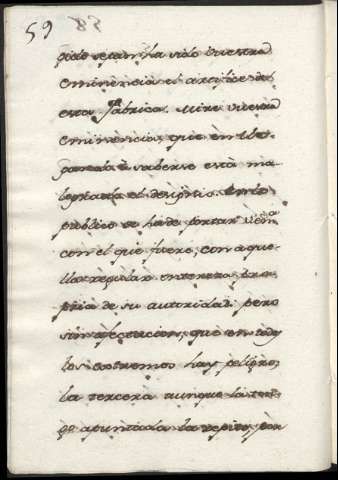 59 58
pido se cum ha sido Vuestra
eminencia el artifice de
esta fabrica. Mire vuestra
eminencia, que en lle
a saberse está ma
lograda el designio. En lo
publico se ha de portar V. em.ª
con el que fuere, con aque
lla regular entereza pro
pria de su autoridad: pero
sin afectacion, que en todos
los extremos hay peligro,
la tercera aunque la ten
go apuntada la repito, por